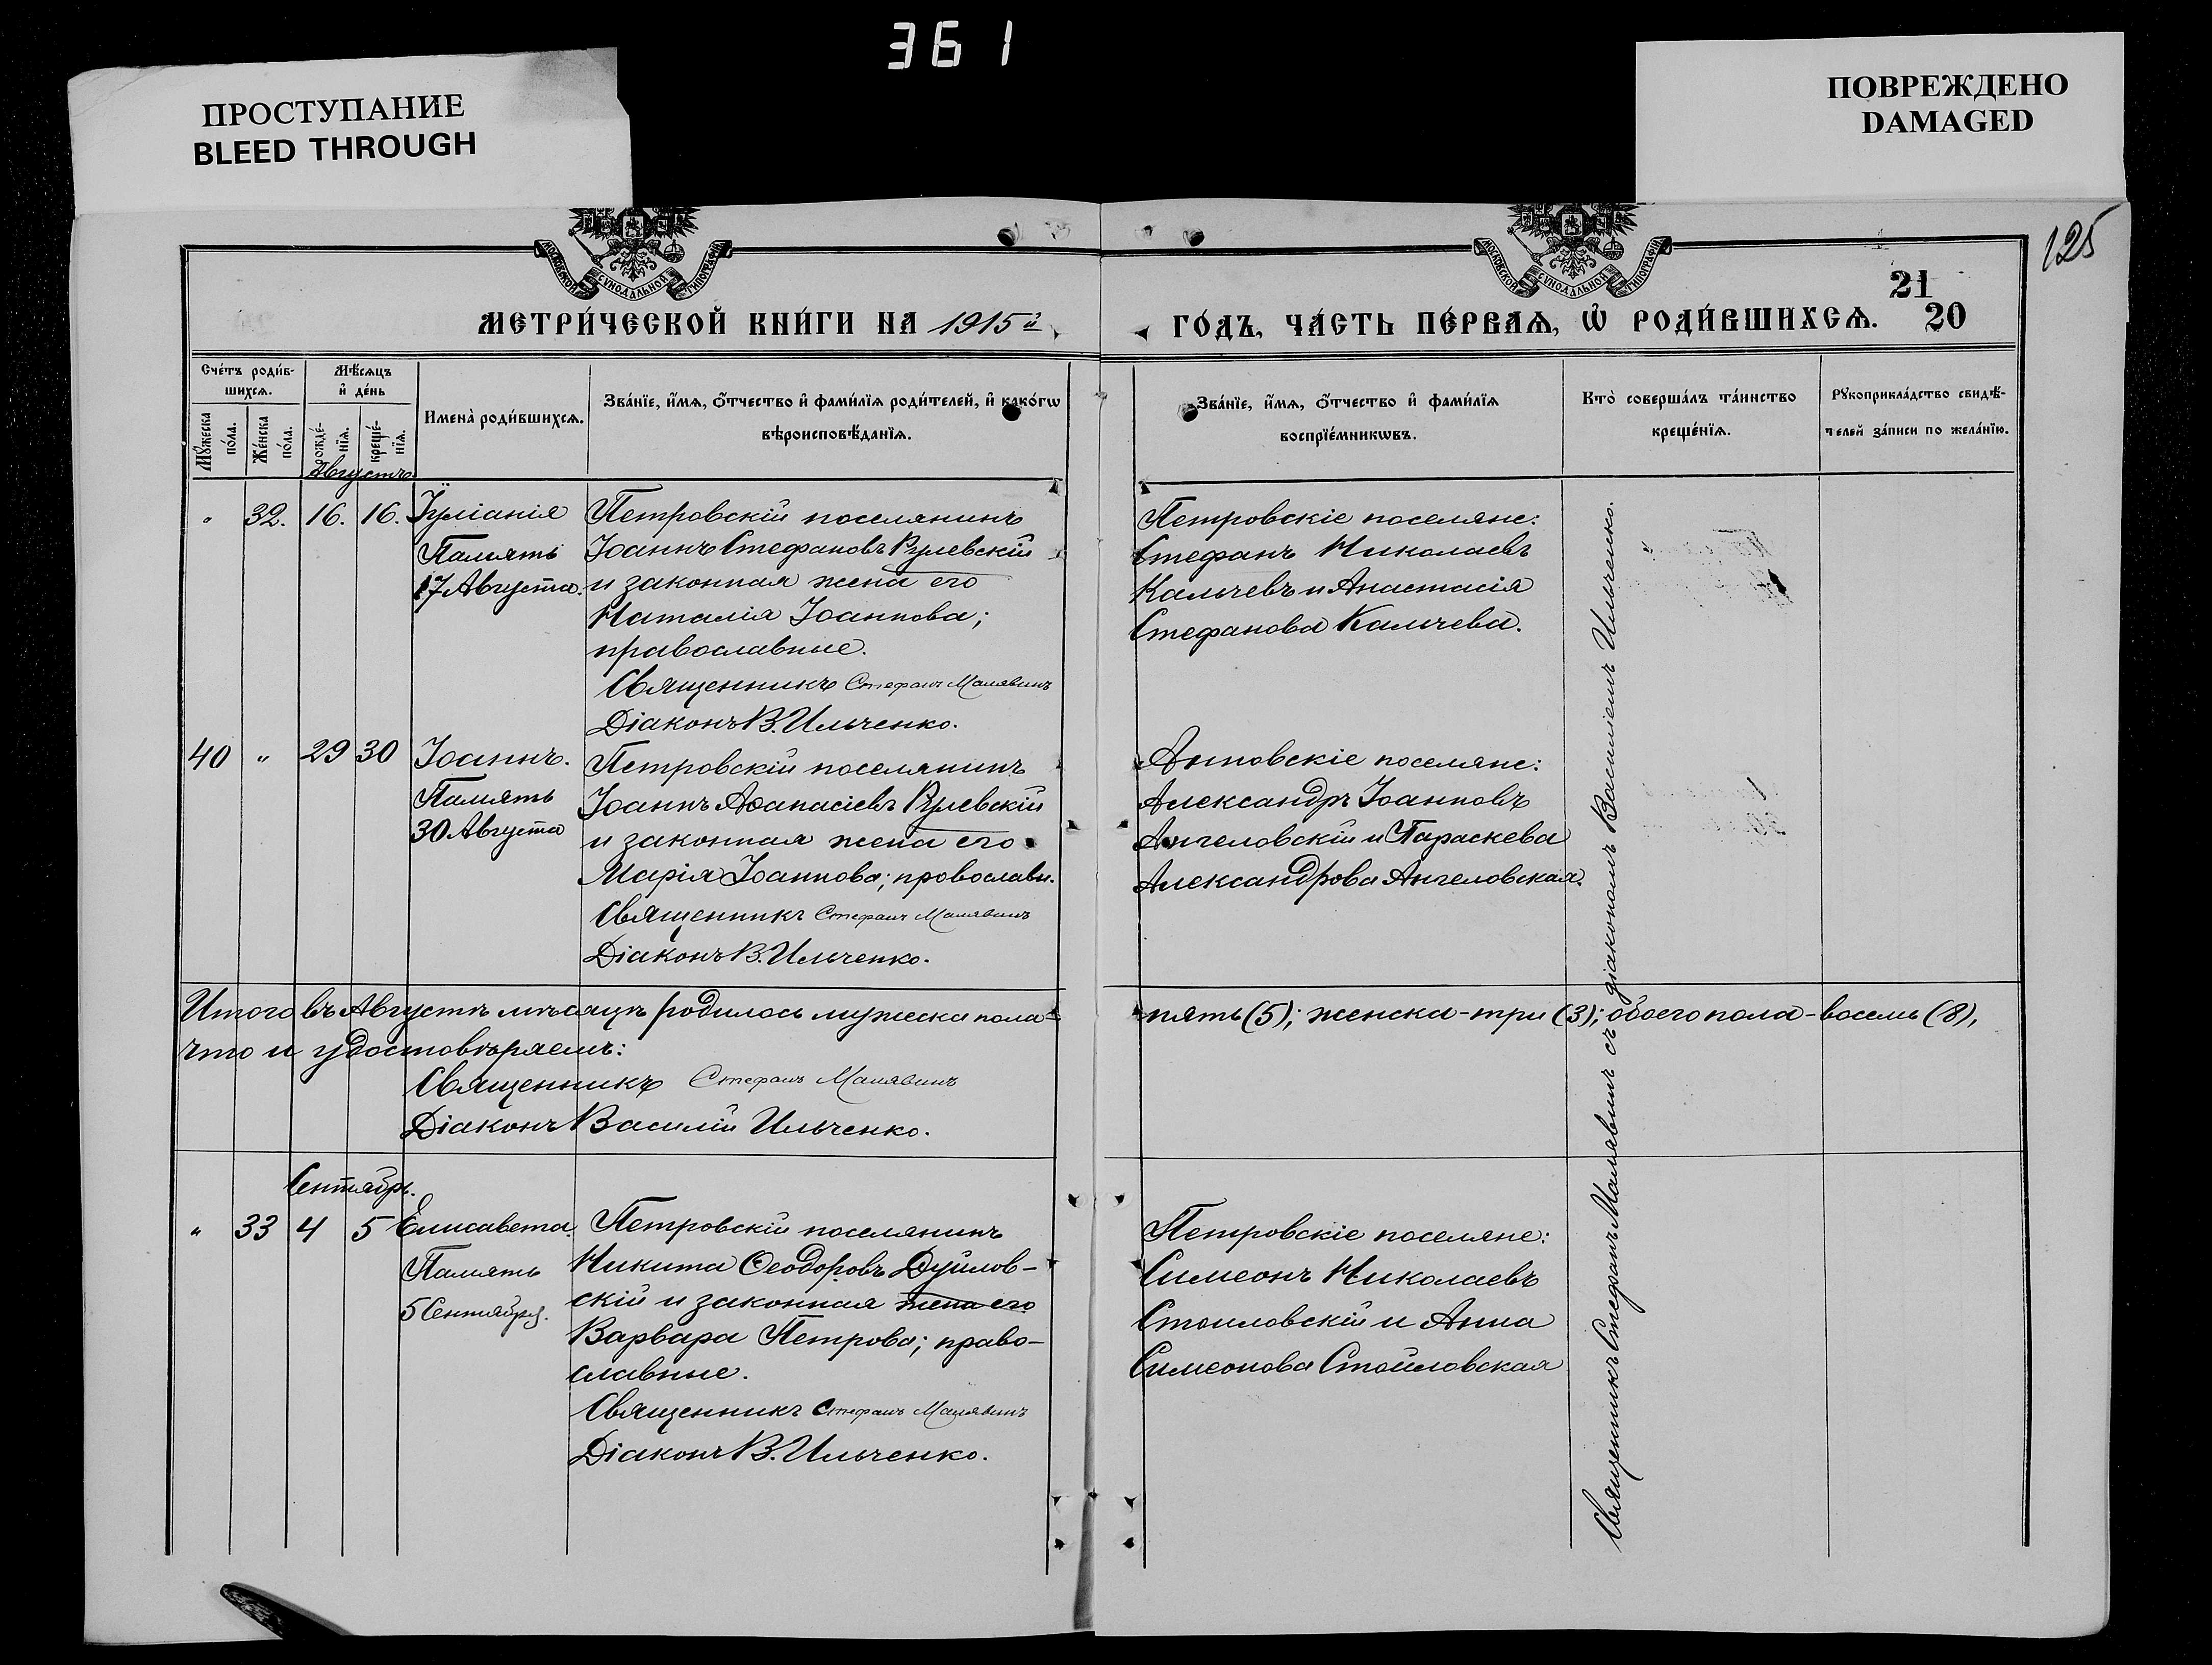 361
ПРОСТУПАНИЕ
BLEED THROUGH
ПОВРЕЖДЕНО
DAMAGED
125
МОСКОВСКОЙ СѴНОДАЛЬНОЙ ТИПОГРАФІИ
МОСКОВСКОЙ СѴНОДАЛЬНОЙ ТИПОГРАФІИ
21
МЕТРИ́ЧЕСКОЙ КНИ́ГИ НА 1915й
ГО́ДЪ, ЧА́СТЬ ПЕ́РВАѦ, Ѡ҆ РОДИ́ВШИХСѦ. 20
Сче́тъ роди́в-
шихсѧ.
Мꙋ́жеска
по́ла.
Же́нска
по́ла.
Мѣ́сѧцъ
и҆ де́нь
рожде́-
нїѧ.
креще́-
нїѧ.
Имена̀ роди́вшихсѧ.
Зва́нїе, и҆́мѧ, ѻ҆́тчество и҆ фами́лїѧ роди́телей, и҆ како́гѡ
вѣроисповѣ́данїѧ.
Зва́нїе, и҆́мѧ, ѻ҆́тчество и҆ фами́лїѧ
воспрїе́мникѡвъ.
Кто̀ соверша́лъ та́инство
креще́нїѧ.
Рꙋкоприкла́дство свидѣ́-
телей за́писи по жела́нїю.
Августъ.
" 32. 16. 16. Іуліанія
Память
17 Августа.
Петровскій поселянинъ
Іоаннъ Стефановъ Рулевскій
и законная жена его
Наталія Іоаннова;
православные.
Священникъ Стефанъ Малявинъ
Діаконъ В. Ильченко.
Петровскіе поселяне:
Стефанъ Николаевъ
Кальчевъ и Анастасія
Стефанова Кальчева.
40 " 29 30 Іоаннъ.
Память
30 Августа
Петровскій поселянинъ
Іоаннъ Аѳанасіевъ Рулевскій
и законная жена его
Марія Іоаннова; православн.
Священникъ Стефанъ Малявинъ
Діаконъ В. Ильченко.
Анновскіе поселяне:
Александръ Іоанновъ
Ангеловскій и Параскева
Александрова Ангеловская.
Итого въ Августѣ мѣсяцѣ родилось мужеска пола -
пять (5); женска - три (3); обоего пола - восемь (8),
что и удостовѣряемъ:
Священникъ Стефанъ Малявинъ
Діаконъ Василій Ильченко.
Сентябрь.
" 33 4 5 Елисавета.
Память
5 Сентября.
Петровскій поселянинъ
Никита Ѳеодоровъ Дуйлов-
скій и законная жена его
Варвара Петрова; право-
славные.
Священникъ Стефанъ Малявинъ
Діаконъ В. Ильченко.
Петровскіе поселяне:
Симеонъ Николаевъ
Стоиловскій и Анна
Симеонова Стоиловская
Священникъ Стефанъ Малявинъ съ діакономъ Василіемъ Ильченко.